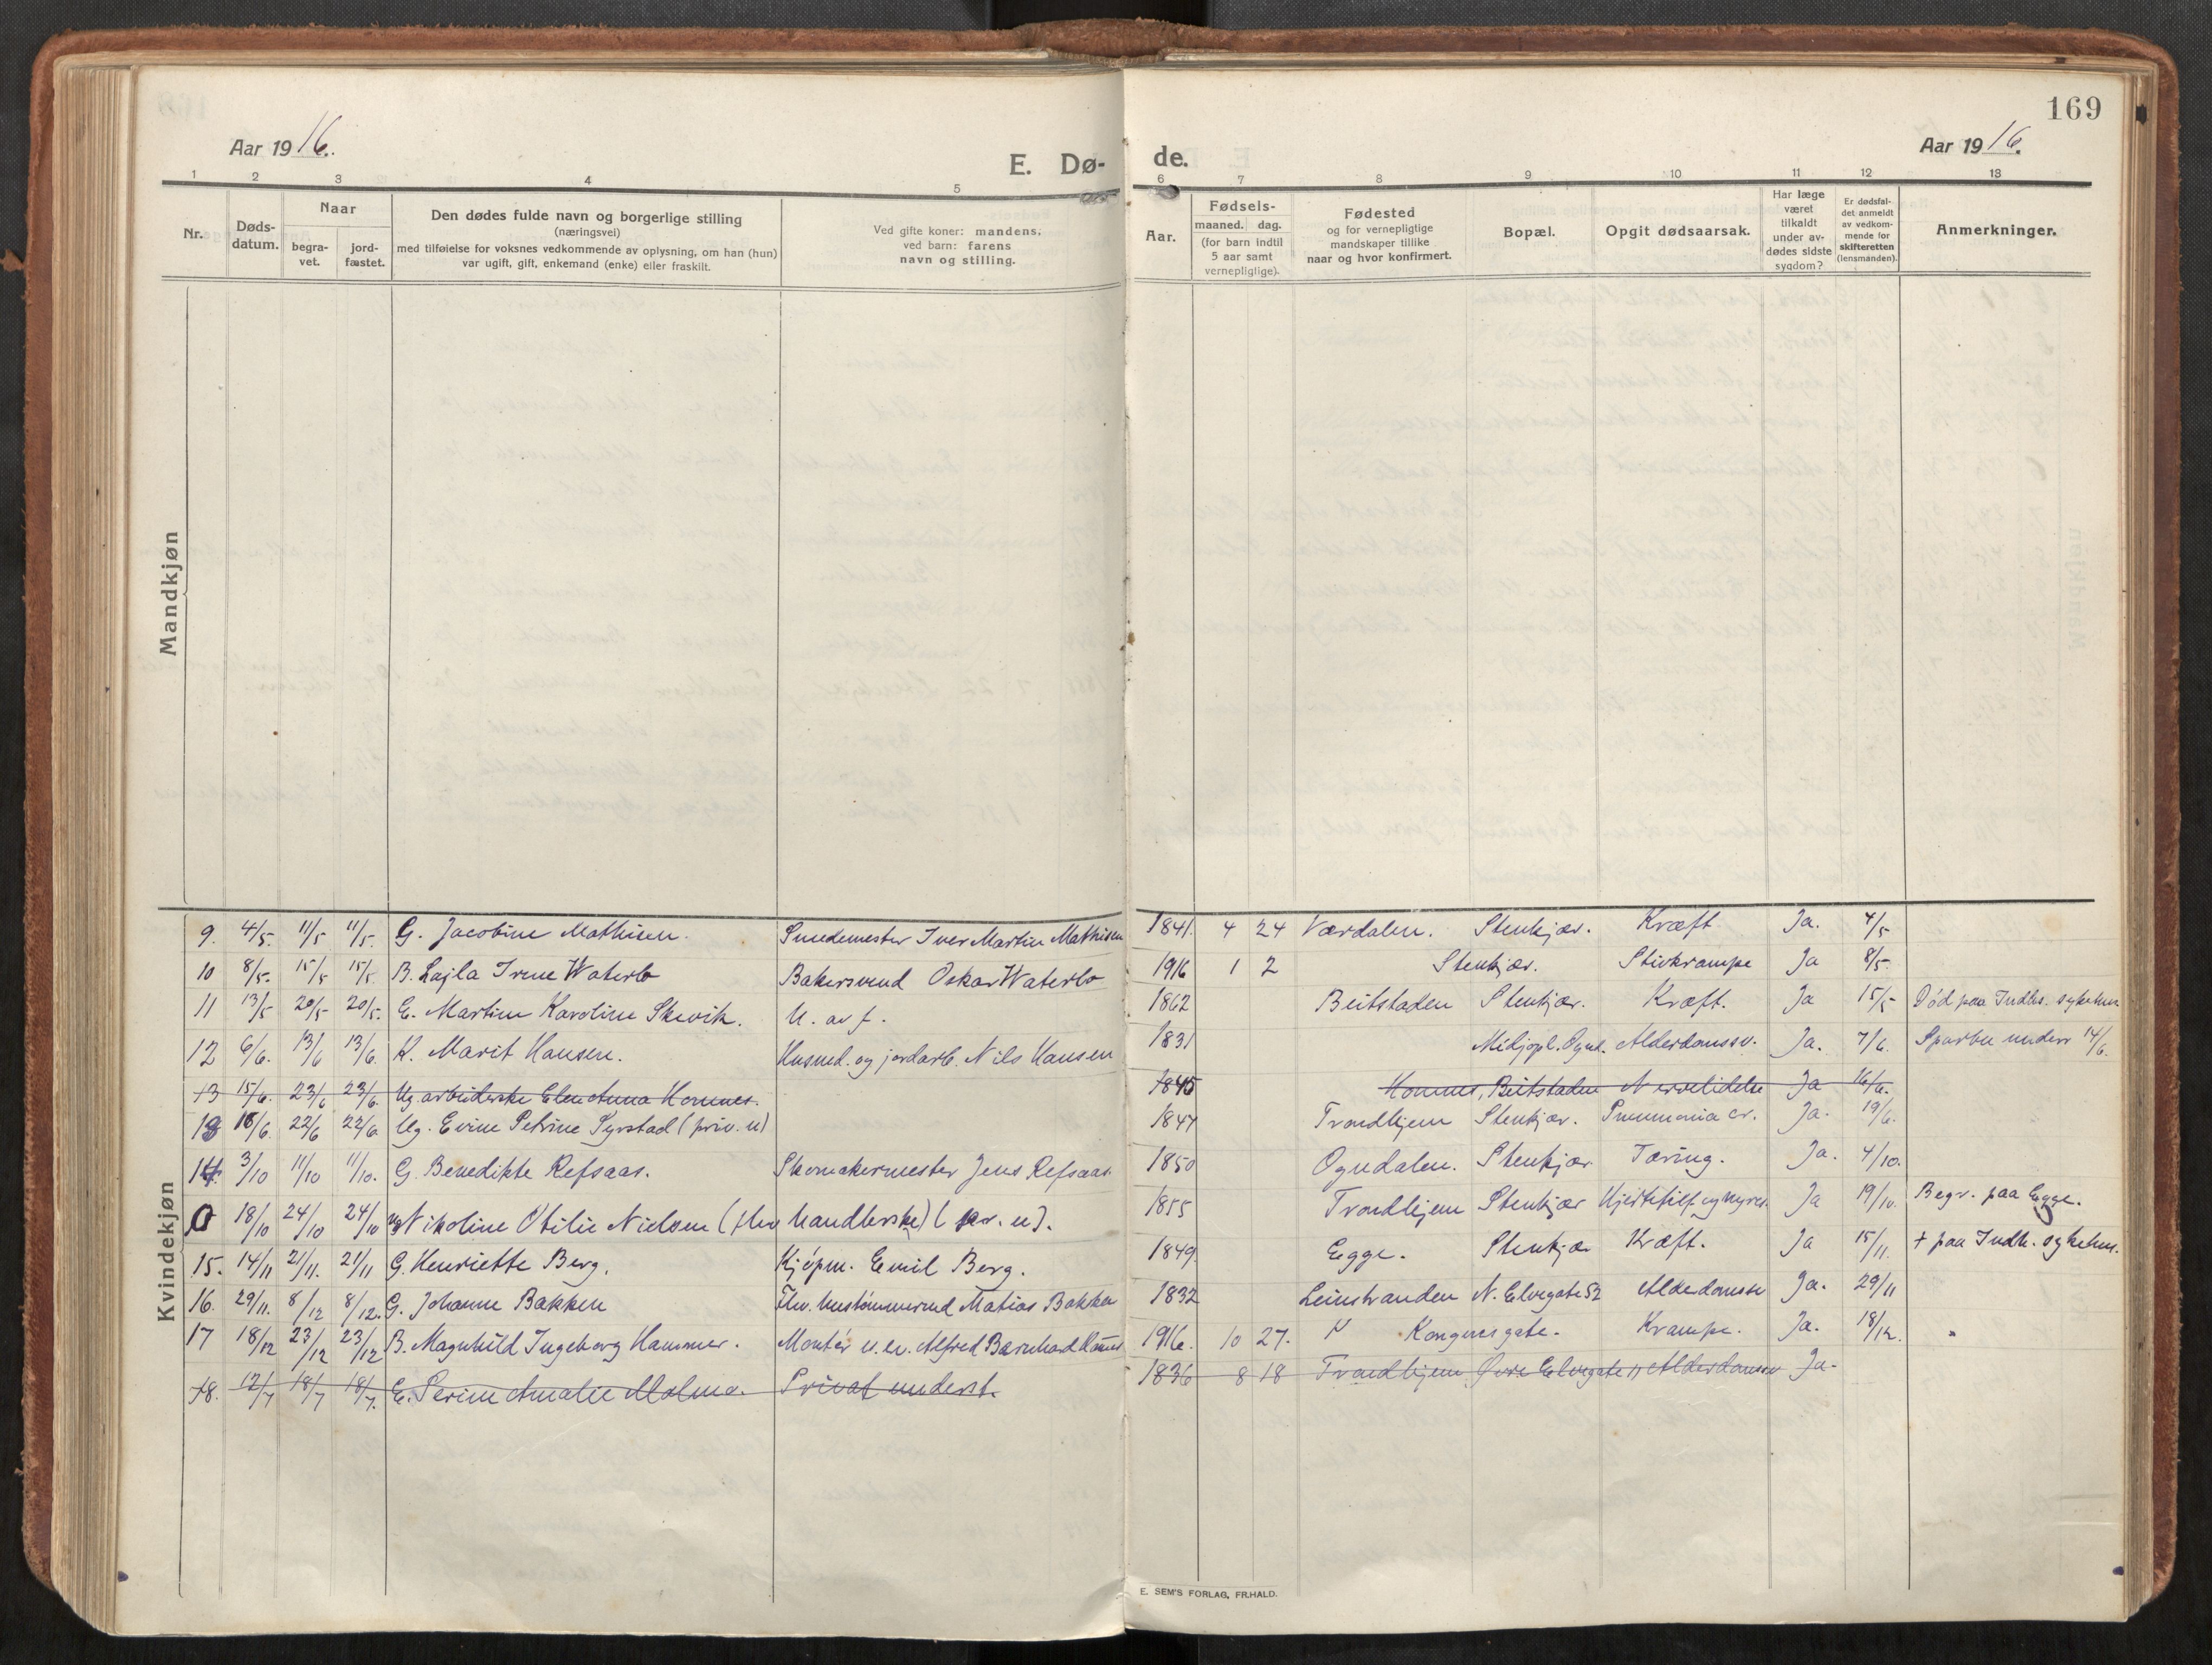 169
Aar 1916.
Aar 1916.
E. Dø-
de.
1 2 3 4 5 6 7 8 9 10 11 12 13
Nr.
Døds-
datum.
Naar
begra-
vet.
jord-
fæstet.
Den dødes fulde navn og borgerlige stilling
(næringsvei)
med tilføielse for voksnes vedkommende av oplysning, om han (hun)
var ugift, gift, enkemand (enke) eller fraskilt.
Ved gifte koner: mandens,
ved barn: farens
navn og stilling.
Aar.
Fødsels-
maaned. dag.
(for barn indtil
5 aar samt
vernepligtige).
Fødested
og for vernepligtige
mandskaper tillike
naar og hvor konfirmert.
Bopæl.
Opgit dødsaarsak.
Har læge
været
tilkaldt
under av-
dødes sidste
sygdom?
Er dødsfal-
det anmeldt
av vedkom-
mende for
skifteretten
(lensmanden).
Anmerkninger.
Mandkjøn
Kvindekjøn
9. 4/5. 11/5 11/5. G. Jacobine Mathisen. Smedemester Iver Martin Mathisen 1841. 4 24 Værdalen. Stenkjær. Kræft Ja. 4/5
10 8/5. 15/5 15/5 B. Lajla Irene Waterlo Bakersvend Oskar Waterlo 1916 1 2 Stenkjær. Stivkrampe Ja 8/5.
11 13/5 20/5 20/5. E. Martine Karoline Skevik. U. av f. 1862 Beitstaden Stenkjær. Kræft. Ja 15/5 Død paa Indhs. sykehus
12 6/6. 13/6 13/6. K. Marit Hansen. Husmd. og jordarb. Nils Hansen 1831 Midjopl. Ognd. Alderdomssv. Ja. 7/6. Sparbu underr 14/6.
13 15/6. 23/6 23/6. Ug. arbeiderske Elen Anna Homnes. 1845 Homnes, Beitstaden Nervelidelse Ja 16/6.
13 16/6. 22/6 22/6. Ug. Evine Petrine Syrstad (priv. u) 1847 Trondhjem Stenkjær. Pneumonia cr. Ja. 19/6.
14. 3/10 11/10 11/10. G. Benedikte Refsaas. Skomakermester Jens Refsaas. 1850 Ogndalen. Stenkjær Tæring. Ja. 4/10.
0 18/10 24/10 24/10 Ug Nikoline Otilie Nielsen (fhv handlerske) (pr. u). 1855 Trondhjem Stenkjær Hjertefeil og nyres. Ja 19/10. Begr. paa Egge.
15. 14/11 21/11. 21/11 G. Henriette Berg. Kjøpm. Emil Berg. 1849. Egge. Stenkjær Kræft. Ja 15/11. + paa Indh. sykehus.
16. 29/11. 8/12 8/12. G. Johanne Bakken Fhv. hustømmermd Matias Bakken 1832 Leinstranden N. Elvegate 52 Alderdomssv Ja. 29/11
17 18/12 23/12 23/12 B. Magnhild Ingeborg Hammer. Montør v. el. Alfred Bernhard Hammer 1916. 10 27. Kongensgate. Krampe. Ja. 18/12. "
18. 12/7 18/7 18/7. E. Serine Amalie Malmo. Privat underst. 1836 8 18 Trondhjem Øvre Elvegate 11 Alderdomssv Ja.
E. SEM'S FORLAG, FR.HALD.